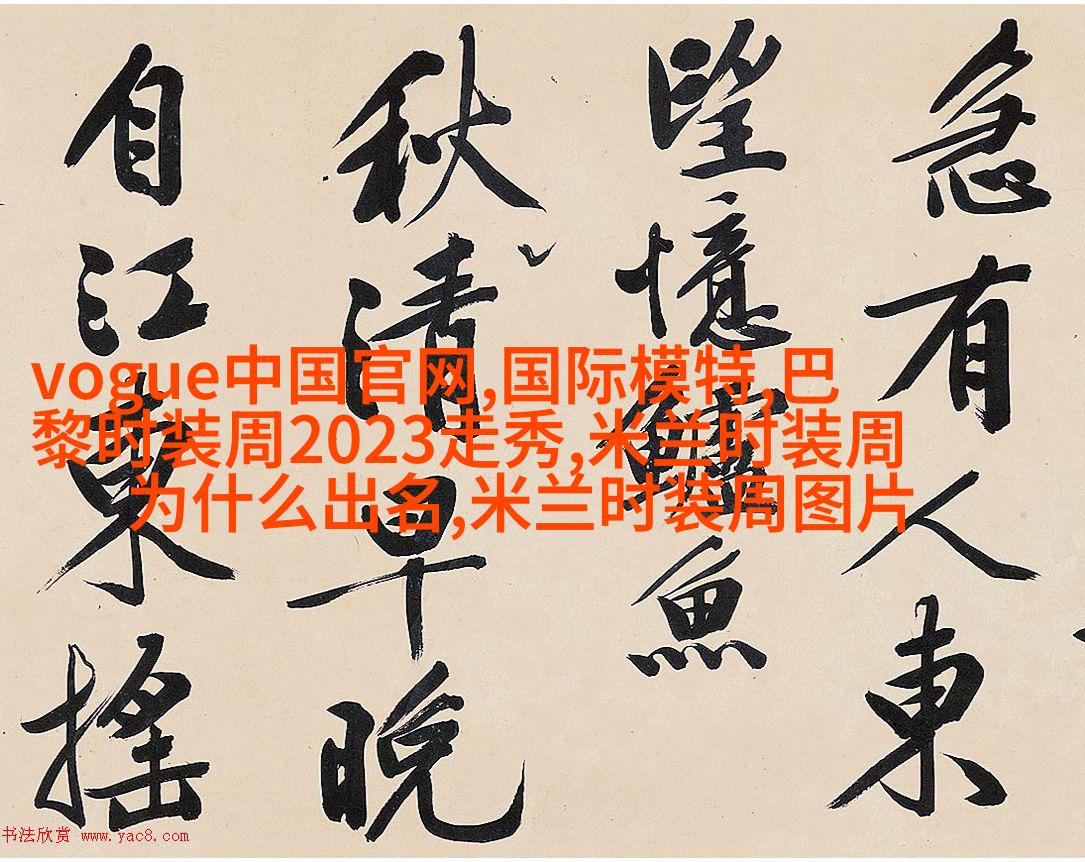 急有人東
望憶鱸魚
秋清早晚
自江東搖
vogue中国官网,国际模特,巴
黎时装周2023走秀,米兰时装周
为什么出名,米兰时装周图片
书法欣赏 www.yac8.com